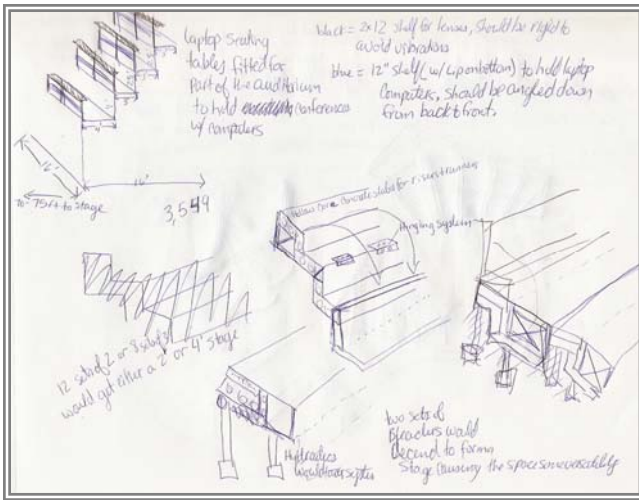 laptop seating
tables fitted for
Part of the auditorium
to hold conferences
w/ computers
black = 2x12 shelf for lenses, should be rigid to
avoid vibration
blue = 12" shelf (w/ lip on bottom) to hold laptop
computers, should be angled down
from back to front.
16'
75ft to stage
3,549
Hollow Core Concrete slabs for risers + runners
Hinging system
12 sets of 2 or 3 sets of 3
would get either a 2' or 4' stage
Hydraulics
would lower
two sets of
Bleachers would
Decend to form a
Stage the space some versatility